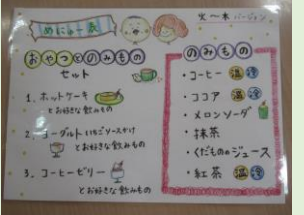 めにゅー表
火~木 バージョン
おやつとのみもの
セット
1. ホットケーキ
とお好きな飲みもの
2. ヨーグルトいちごソースがけ
とお好きな飲みもの
3. コーヒーゼリー
とお好きな飲みもの
のみもの
・コーヒー 温 冷
・ココア 温 冷
・メロンソーダ
・抹茶
・くだものジュース
・紅茶 温 冷